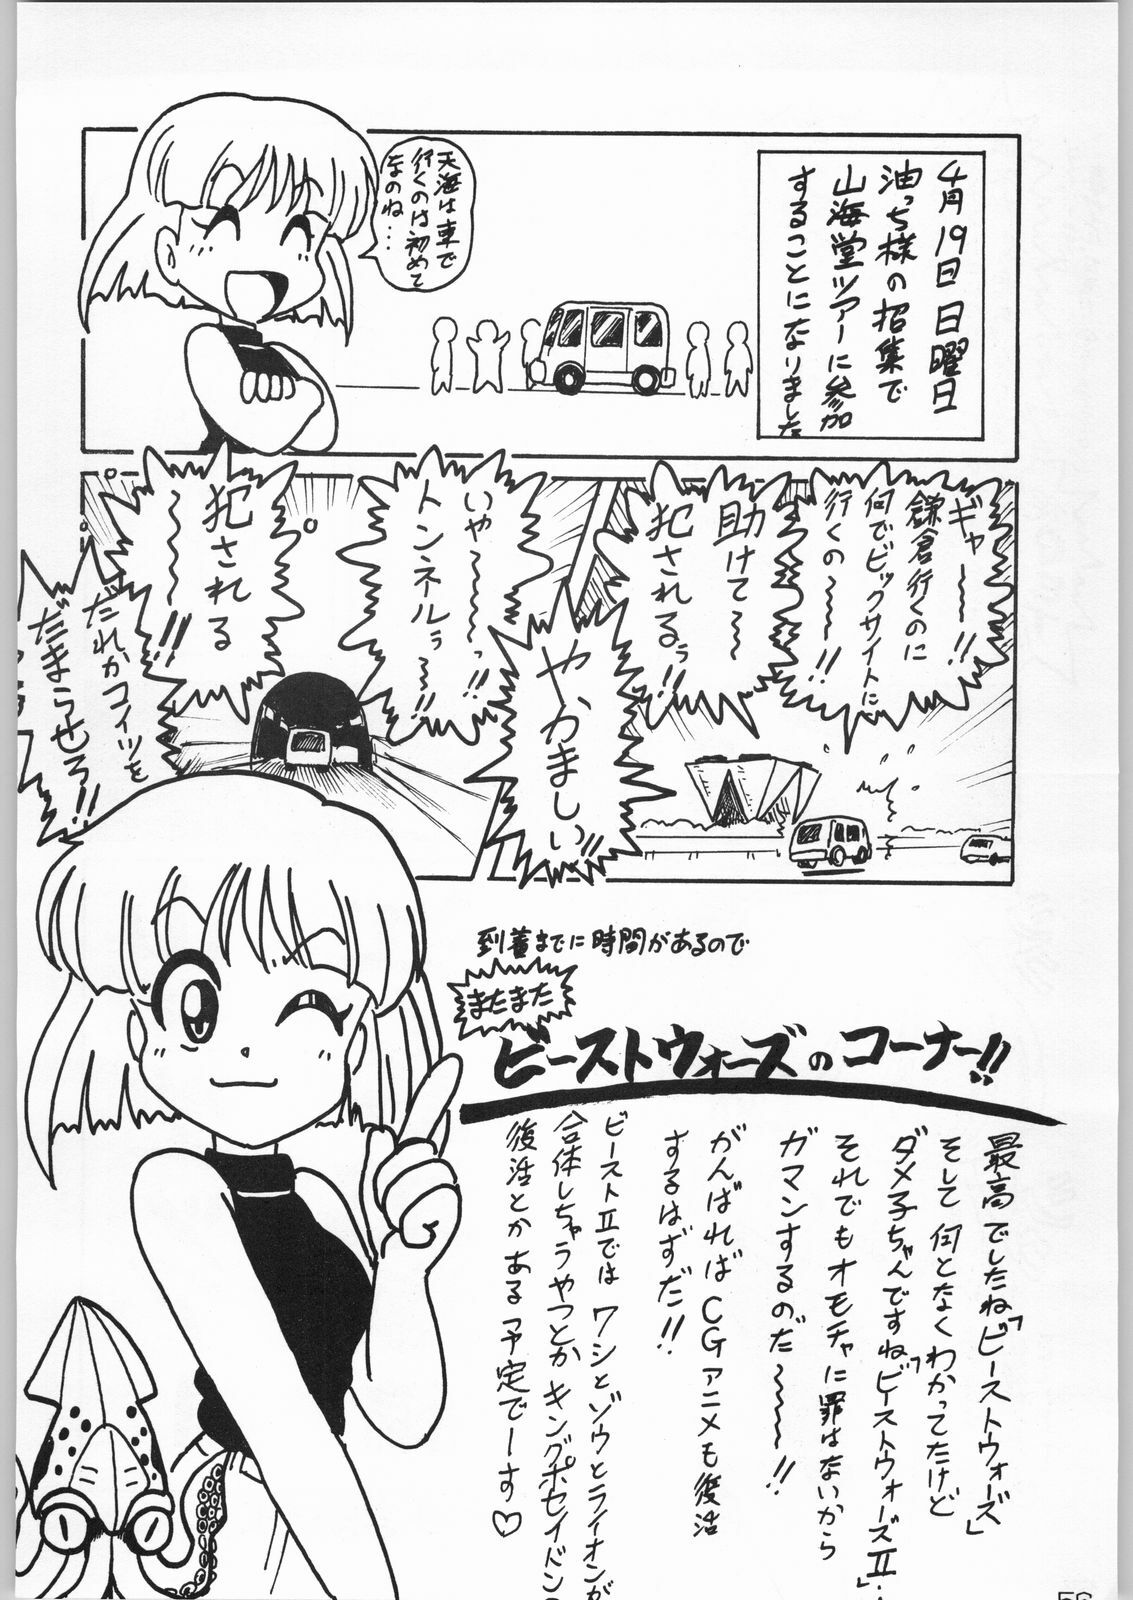 4月19日 日曜日
油っち様の招集で
山海堂ツアーに参加
することになりました
天海は車で
行くのは初めて
なのね…
ギャー〜!!
鎌倉行くのに
何でビックサイトに
行くの〜〜!!
助けて〜〜
犯されるぅ!!
やかましい!!
いや〜〜っ!!
トンネルぅ〜〜!!
犯される
〜〜〜!!
だれかコイツを
だまらせろ!!
到着までに時間があるので
またまた
ビーストウォーズのコーナー!!
最高でしたね「ビーストウォーズ」
そして何となくわかってたけど
ダメ子ちゃんですね「ビーストウォーズⅡ」‥
それでもオモチャに罪はないから
ガマンするのだ〜〜〜!!
がんばればCGアニメも復活
するはずだ!!
ビーストⅡでは ワシとゾウとライオンが
合体しちゃうやつとか キングポセイドンの
復活とかある予定でーす♡